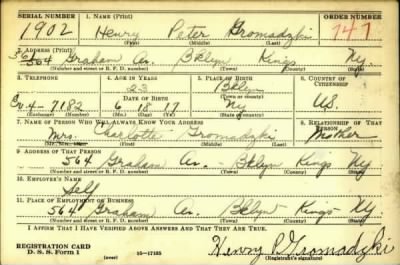 SERIAL NUMBER 1. NAME (Print) ORDER NUMBER
1902 Henry Peter Gromadzki 747
(First) (Middle) (Last)
2. ADDRESS (Print)
564 Graham Av. Bklyn Kings Ny.
(Number and street or R. F. D. number) (Town) (County) (State)
3. TELEPHONE 4. AGE IN YEARS 5. PLACE OF BIRTH 6. COUNTRY OF CITIZENSHIP
23 Bklyn
DATE OF BIRTH (Town or county)
Ev.4-7182 6 18 17 Ny U.S.
(Exchange) (Number) (Mo.) (Day) (Yr.) (State or country)
7. NAME OF PERSON WHO WILL ALWAYS KNOW YOUR ADDRESS 8. RELATIONSHIP OF THAT PERSON
Mrs. Charlotte Gromadzki Mother
(Mr., Mrs., Miss) (First) (Middle) (Last)
9. ADDRESS OF THAT PERSON
564 Graham Av. - Bklyn Kings Ny
(Number and street or R. F. D. number) (Town) (County) (State)
10. EMPLOYER'S NAME
Self
11. PLACE OF EMPLOYMENT OR BUSINESS
564 Graham Av. Bklyn Kings Ny
(Number and street or R. F. D. number) (Town) (County) (State)
I AFFIRM THAT I HAVE VERIFIED ABOVE ANSWERS AND THAT THEY ARE TRUE.
REGISTRATION CARD
D. S. S. Form 1 (over) 16-17105 Henry P Gromadzki
(Registrant's signature)